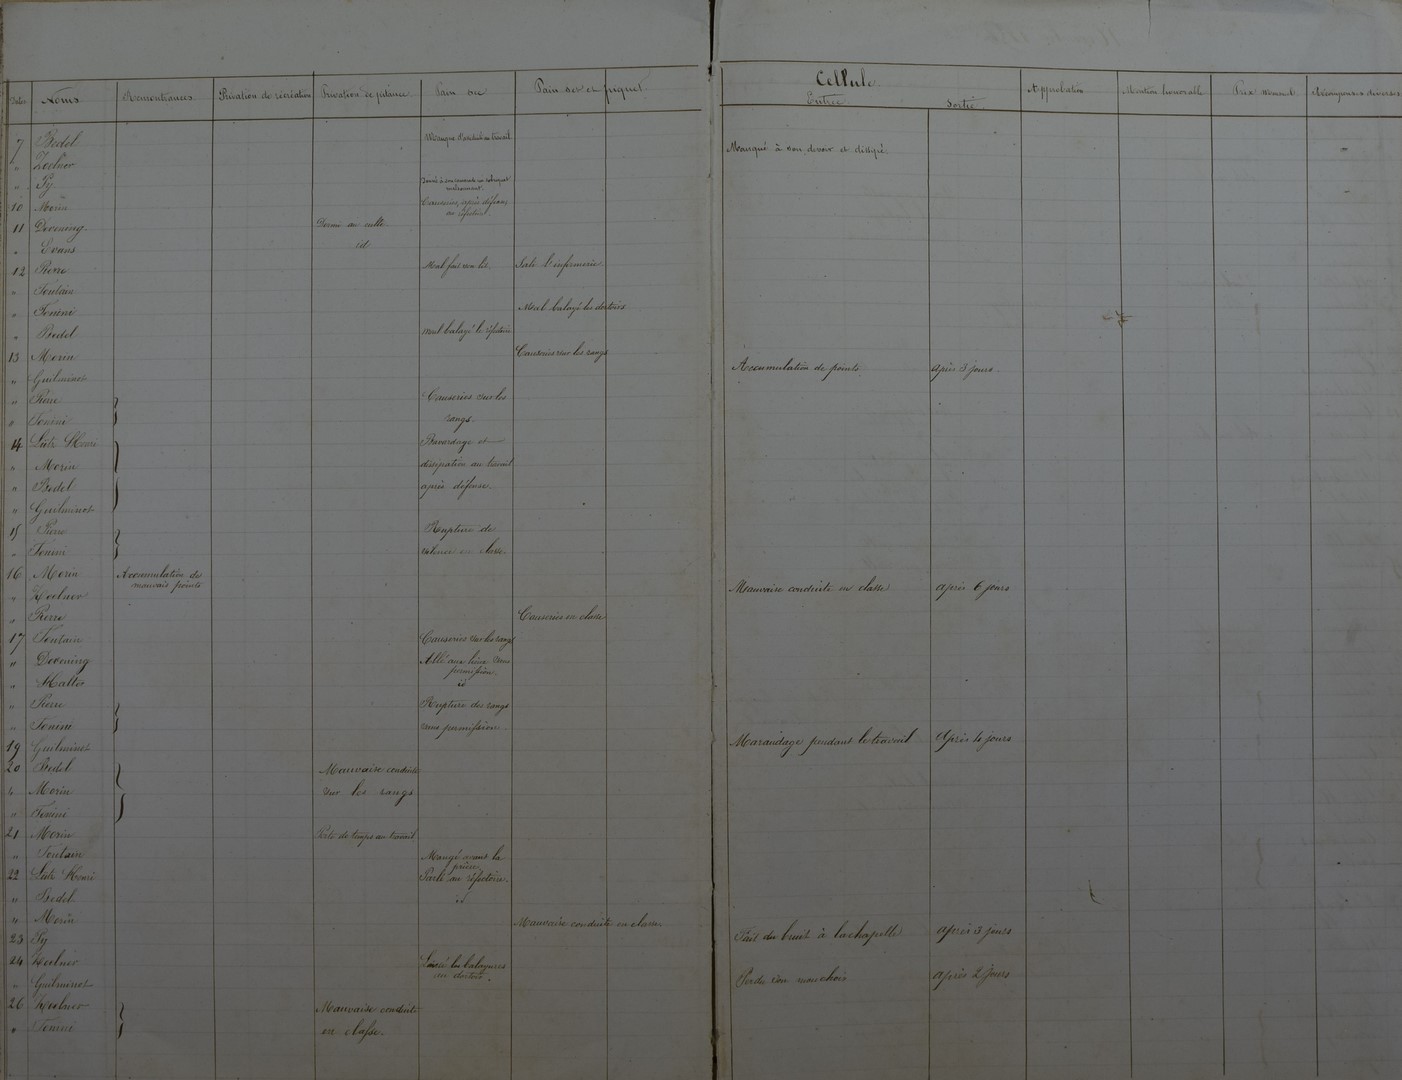 Dates Noms Remontrances Privation de récréation Privation de pitance Pain sec Pain sec et piquet Cellule Approbation Mention honorable Récompenses diverses
Entrée Sortie
7 Bedel Manque d'assiduité au travail
" Manqué à son devoir et dissipé.
" Py
10 Morin Causeries, après défense
au réfectoire
11 Devening Dormi au culte
" Evans id
12 Pierre Mal fait son lit. Sali l'infirmerie
" Toutain
" Tonini Mal balayé les dortoirs
" Bedel mal balayé le réfectoire
13 Morin Causeries sur les rangs
" Guilminot Accumulation de points. après 3 jours.
" Pierre Causeries sur les
" Tonini rangs.
14 Henri Bavardage et
" Morin dissipation au travail
" Bedel après défense.
" Guilminot
15 Pierre Rupture de
" Tonini silence en classe.
16 Morin Accumulation de
mauvais points
" Keelner Mauvaise conduite en classe après 6 jours
" Pierre Causeries en classe
17 Toutain Causeries sur les rangs
" Devening Allé aux sans
permission.
" id
" Pierre Rupture des rangs
" Tonini sans permission.
19 Guilminot Maraudage pendant le travail Après 4 jours
20 Bedel Mauvaise conduite
" Morin sur les rangs
" Tonini
21 Morin Perte de temps au travail
" Toutain Mangé avant la
prière
22 Henri Parlé au réfectoire.
" Bedel id
" Morin Mauvaise conduite en classe
23 Py Fait du bruit à la chapelle après 3 jours
24 Keelner Laissé les balayures
au dortoir.
" Guilminot Perdu son mouchoir après 2 jours
26 Keelner Mauvaise conduite
" Tonini en classe.